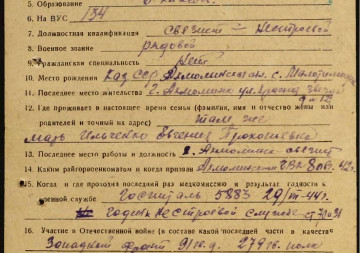 5. Образование
6. На ВУС 134
7. Должностная квалификация связист – нестроевой
8. Военное звание рядовой
9. Гражданская специальность нет
10. Место рождения Каз ССР Акмолинская с.
11. Последнее место жительства г. Акмолинск ул. Красная звезда
д № 12
12. Где проживает в настоящее время семья (фамилия, имя и отчество жены или
родителей и точный их адрес) там же
мать Ильченко Евгения Прокофьевна
13. Последнее место работы и должность г. Акмолинск связист
14. Каким райгорвоенкоматом и когда призван Акмолинским ГВК
15. Когда и где проходил последний раз медкомиссию и результат годности к
военной службе госпиталь 5883 29/
годен к нестроевой службе ст
16. Участие в Отечественной войне (в составе какой последней части в качестве
Западный фронт 91 г.д. 279 г.с. полк